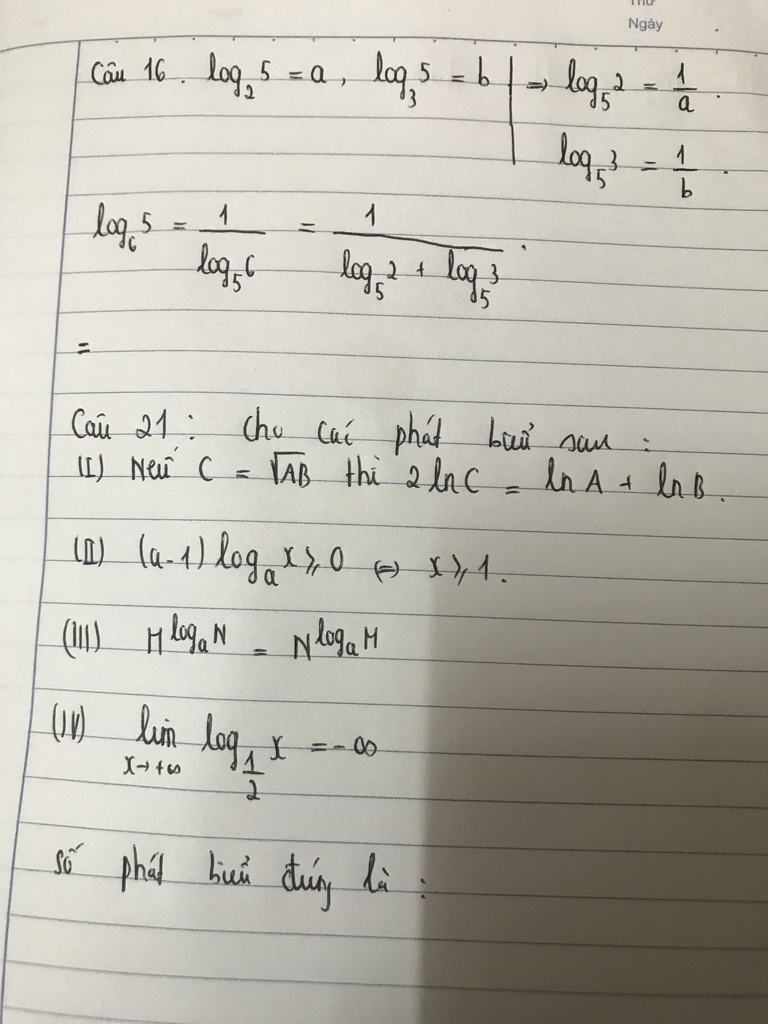 Thứ
Ngày
Câu 16. log₂5 = a, log₃5 = b | ⇒ log₅2 = 1/a.
log₅3 = 1/b.
log₆5 = 1/log₅6 = 1/(log₅2 + log₅3).
=
Câu 21: Cho các phát biểu sau:
(I) Nếu C = √AB thì 2lnC = lnA + lnB.
(II) (a-1)logₐx ⩾ 0 ⇔ x ⩾ 1.
(III) M^(logₐN) = N^(logₐM)
(IV) lim_(x→+∞) log_(1/2) x = -∞
số phát biểu đúng là: